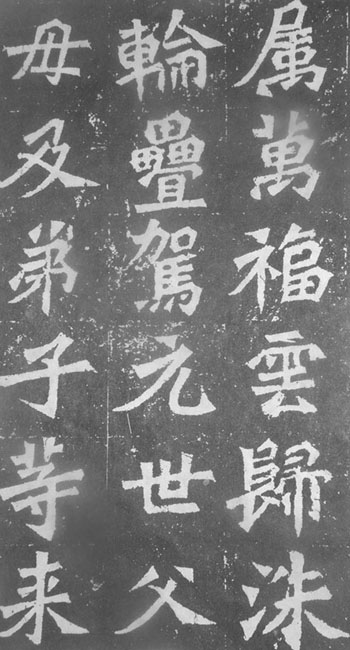 属萬福雲歸洙
輪疊駕元世父
母及弟子等来